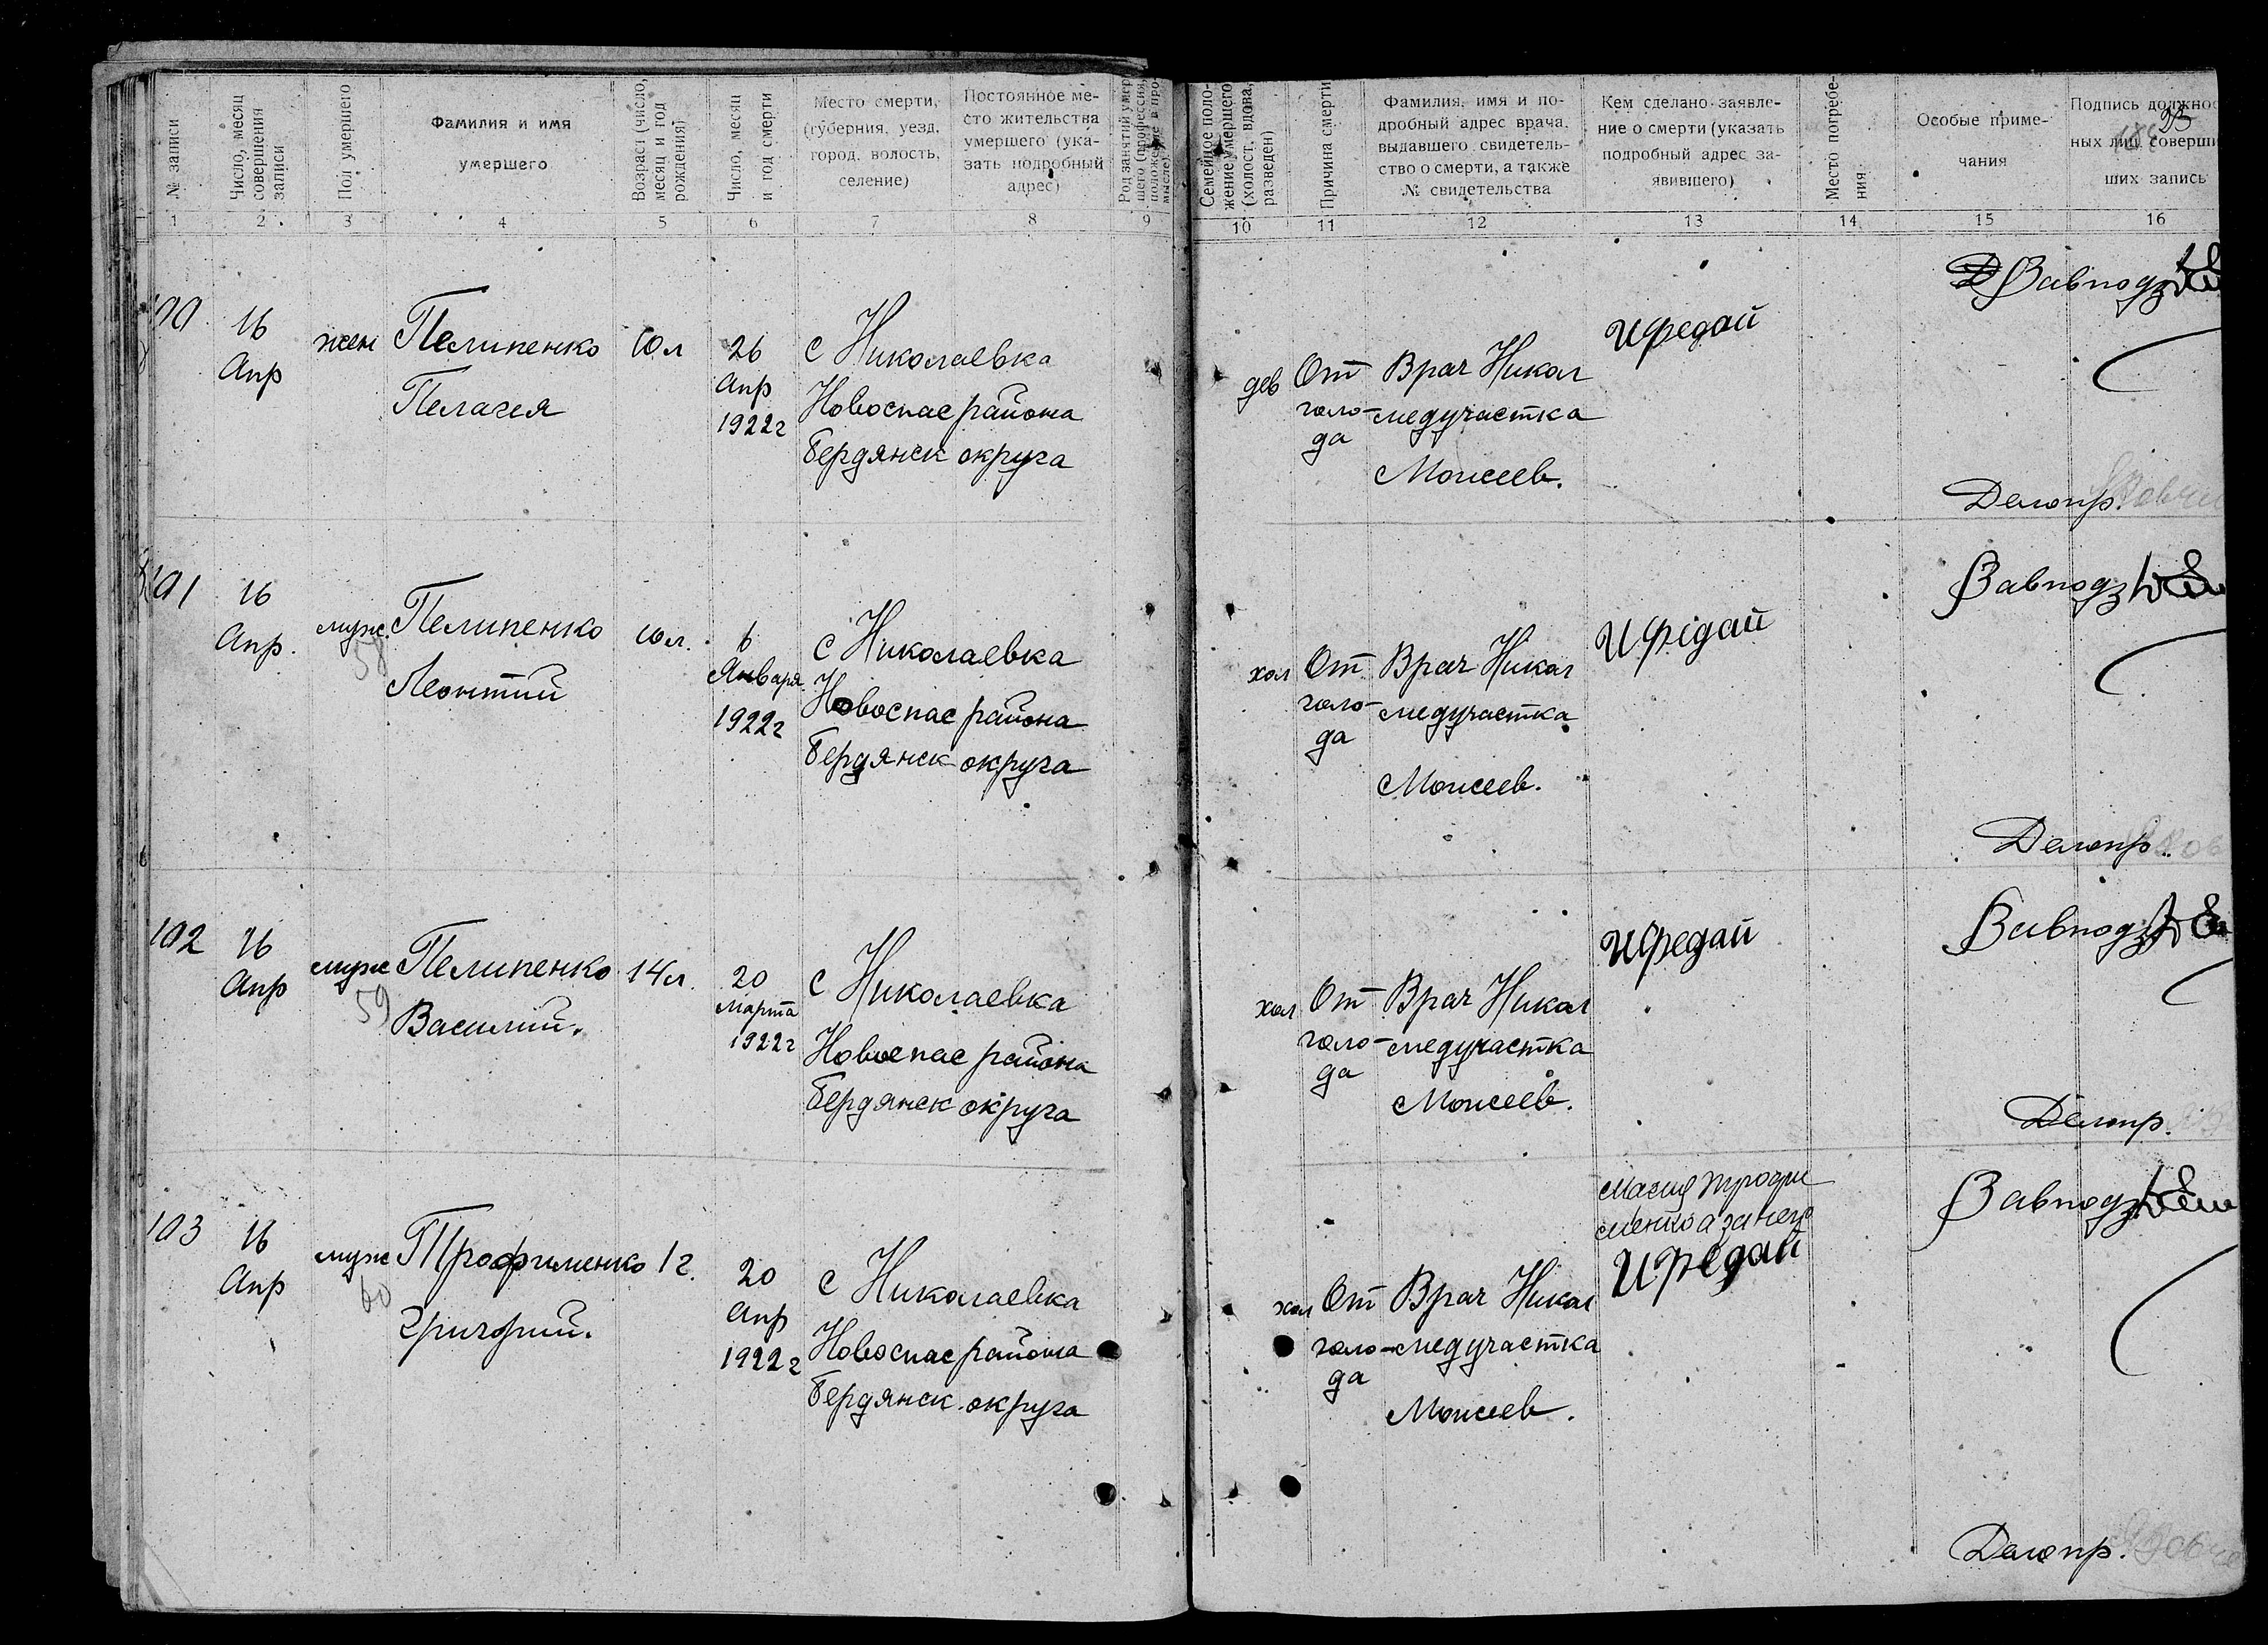 № записи
Число, месяц
совершения
записи
Пол умершего
Фамилия и имя
умершего
Возраст (число,
месяц и год
рождения)
Число, месяц
и год смерти
Место смерти,
(губерния, уезд,
город, волость,
селение)
Постоянное ме-
сто жительства
умершего (ука-
зать подробный
адрес)
Род занятий умер
шего (профессия,
положение в про-
мысле)
Семейное поло-
жение умершего
(холост, вдова,
разведен)
Причина смерти
Фамилия, имя и по-
дробный адрес врача,
выдавшего свидетель-
ство о смерти, а также
№ свидетельства
Кем сделано заявле-
ние о смерти (указать
подробный адрес за-
явившего)
Место погребе-
ния
Особые приме-
чания
Подпись должнос
ных лиц соверши
ших запись
1 2 3 4 5 6 7 8 9 10 11 12 13 14 15 16
100
16
Апр
жен
Пелипенко
Пелагея
10 л
26
Апр
1922 г
с Николаевка
Новоспас района
Бердянск округа
дев
От
голо-
да
Врач Никол
медучастка
Моисеев.
Завподз
Делопр.
101
16
Апр.
муж.
58
Пелипенко
Леонтий
10 л.
6
Января
1922 г
с Николаевка
Новоспас района
Бердянск округа
хол
От
голо-
да
Врач Никол
медучастка
Моисеев.
Завподз
Делопр.
102
16
Апр
муж
59
Пелипенко
Василий.
14 л.
20
марта
1922 г
с Николаевка
Новоспас района
Бердянск округа
хол
От
голо-
да
Врач Никол
медучастка
Моисеев.
Завподз
Делопр.
103
16
Апр
муж
60
Трофименко
Григорий.
1 г.
20
Апр
1922 г
с Николаевка
Новоспас района
Бердянск округа
хол
От
голо-
да
Врач Никол
медучастка
Моисеев.
Трофи
менко а за него
Завподз
Делопр.